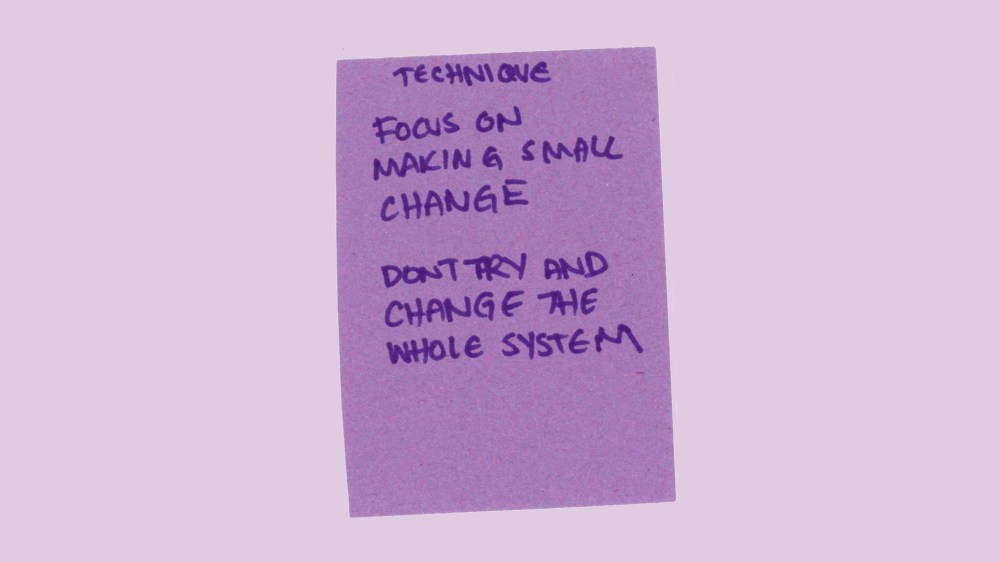 TECHNIQUE
FOCUS ON
MAKING SMALL
CHANGE
DONT TRY AND
CHANGE THE
WHOLE SYSTEM